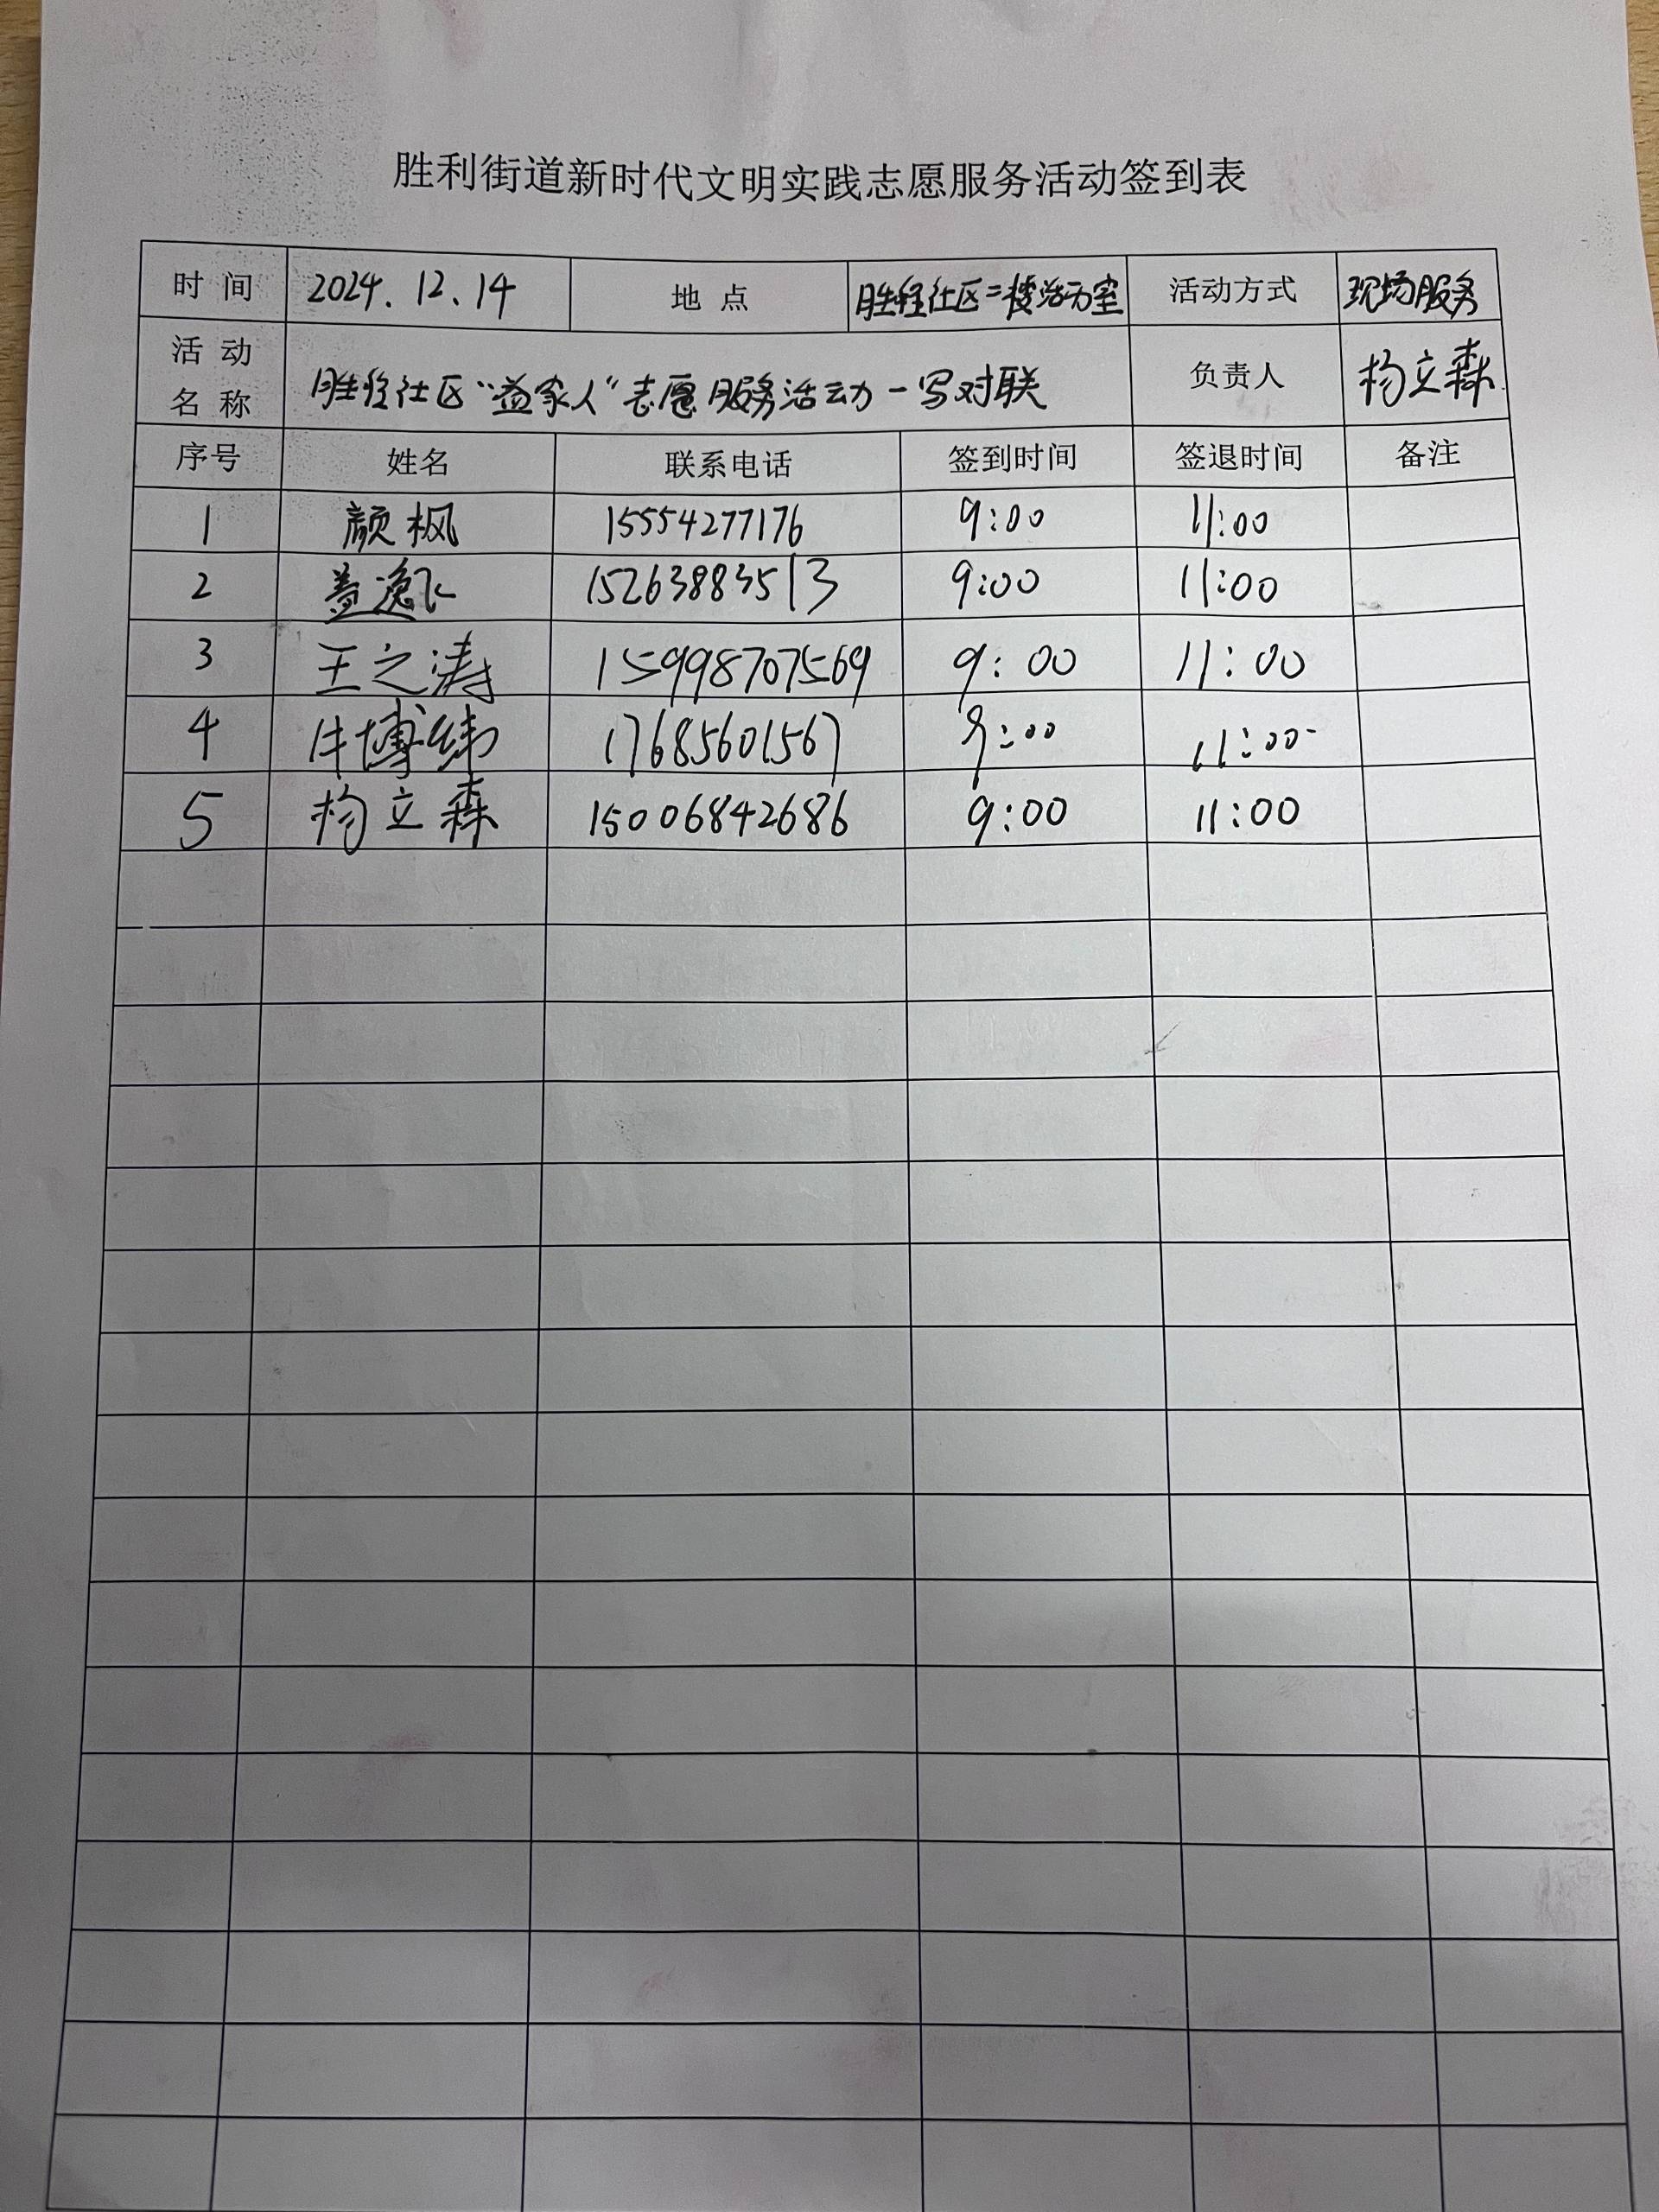 胜利街道新时代文明实践志愿服务活动签到表
时间 2024.12.14 地点 胜程社区二楼活动室 活动方式 现场服务
活动名称 胜程社区“益家人”志愿服务活动-写对联 负责人 杨立森
序号 姓名 联系电话 签到时间 签退时间 备注
1 颜枫 15554277176 9:00 11:00
2 盖逸飞 15263883513 9:00 11:00
3 王之涛 15998707569 9:00 11:00
4 牛博纬 17685601567 9:00 11:00
5 杨立森 15006842686 9:00 11:00